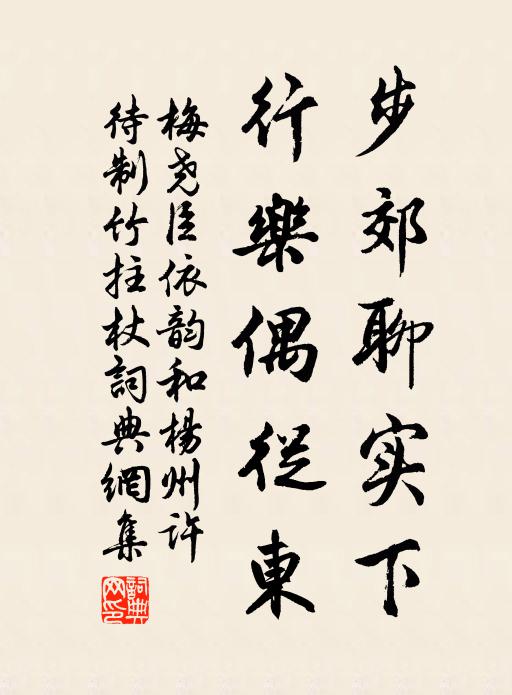 步郊聊实下
行樂偶從東
梅尧臣依韵和楊州许
待制竹拄杖詞典網集
詞典网印